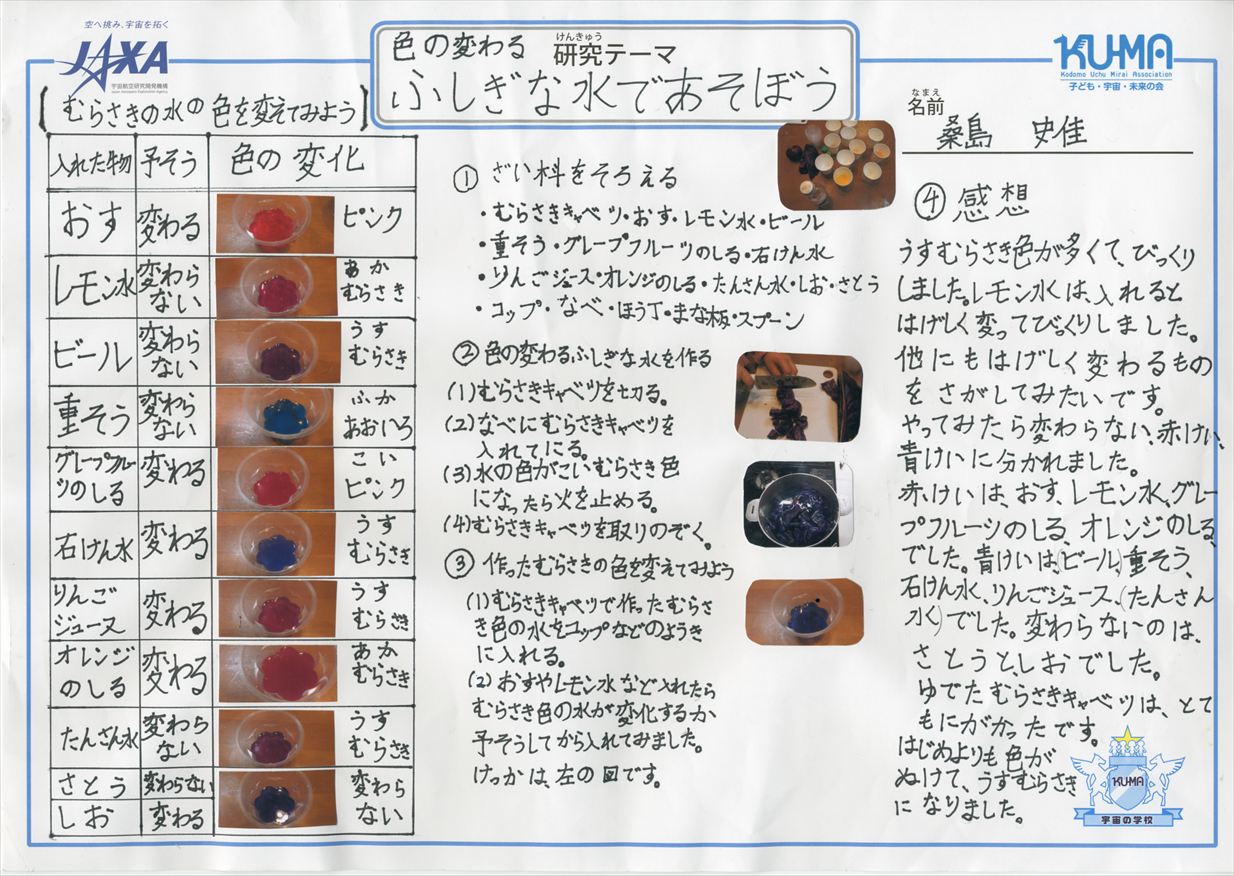 空へ挑み、宇宙を拓く
JAXA
宇宙航空研究開発機構
Japan Aerospace Exploration Agency
色の変わる 研究テーマ
けんきゅう
ふしぎな水であそぼう
KU-MA
Kodomo Uchu Mirai Association
子ども・宇宙・未来の会
なまえ
名前
桑島 史佳
むらさきの水の色を変えてみよう
入れた物 予そう 色の変化
おす 変わる ピンク
レモン水 変わらない あかむらさき
ビール 変わらない うすむらさき
重そう 変わらない ふかあおいろ
グレープフルーツのしる 変わる こいピンク
石けん水 変わる うすむらさき
りんごジュース 変わる うすむらさき
オレンジのしる 変わる あかむらさき
たんさん水 変わらない うすむらさき
さとう 変わらない 変わらない
しお 変わる
① ざい料をそろえる
・むらさきキャベツ・おす・レモン水・ビール
・重そう・グレープフルーツのしる・石けん水
・りんごジュース・オレンジのしる・たんさん水・しお・さとう
・コップ・なべ・ほう丁・まな板・スプーン
② 色の変わるふしぎな水を作る
(1)むらさきキャベツを切る。
(2)なべにむらさきキャベツを
入れてにる。
(3)水の色がこいむらさき色
になったら火を止める。
(4)むらさきキャベツを取りのぞく。
③ 作ったむらさきの色を変えてみよう
(1)むらさきキャベツで作ったむらさ
き色の水をコップなどのようき
に入れる。
(2)おすやレモン水など入れたら
むらさき色の水が変化するか
予そうしてから入れてみました。
けっかは、左の図です。
④ 感想
うすむらさき色が多くて、びっくり
しました。レモン水は、入れると
はげしく変ってびっくりしました。
他にもはげしく変わるもの
をさがしてみたいです。
やってみたら変わらない、赤けい、
青けいに分かれました。
赤けいは、おす、レモン水、グレー
プフルーツのしる、オレンジのしる、
でした。青けいは、(ビール)重そう、
石けん水、りんごジュース、(たんさん
水)でした。変わらないのは、
さとうと、しおでした。
ゆでたむらさきキャベツは、とて
もにがかったです。
はじめよりも色が
ぬけて、うすむらさき
になりました。
KU-MA
宇宙の学校